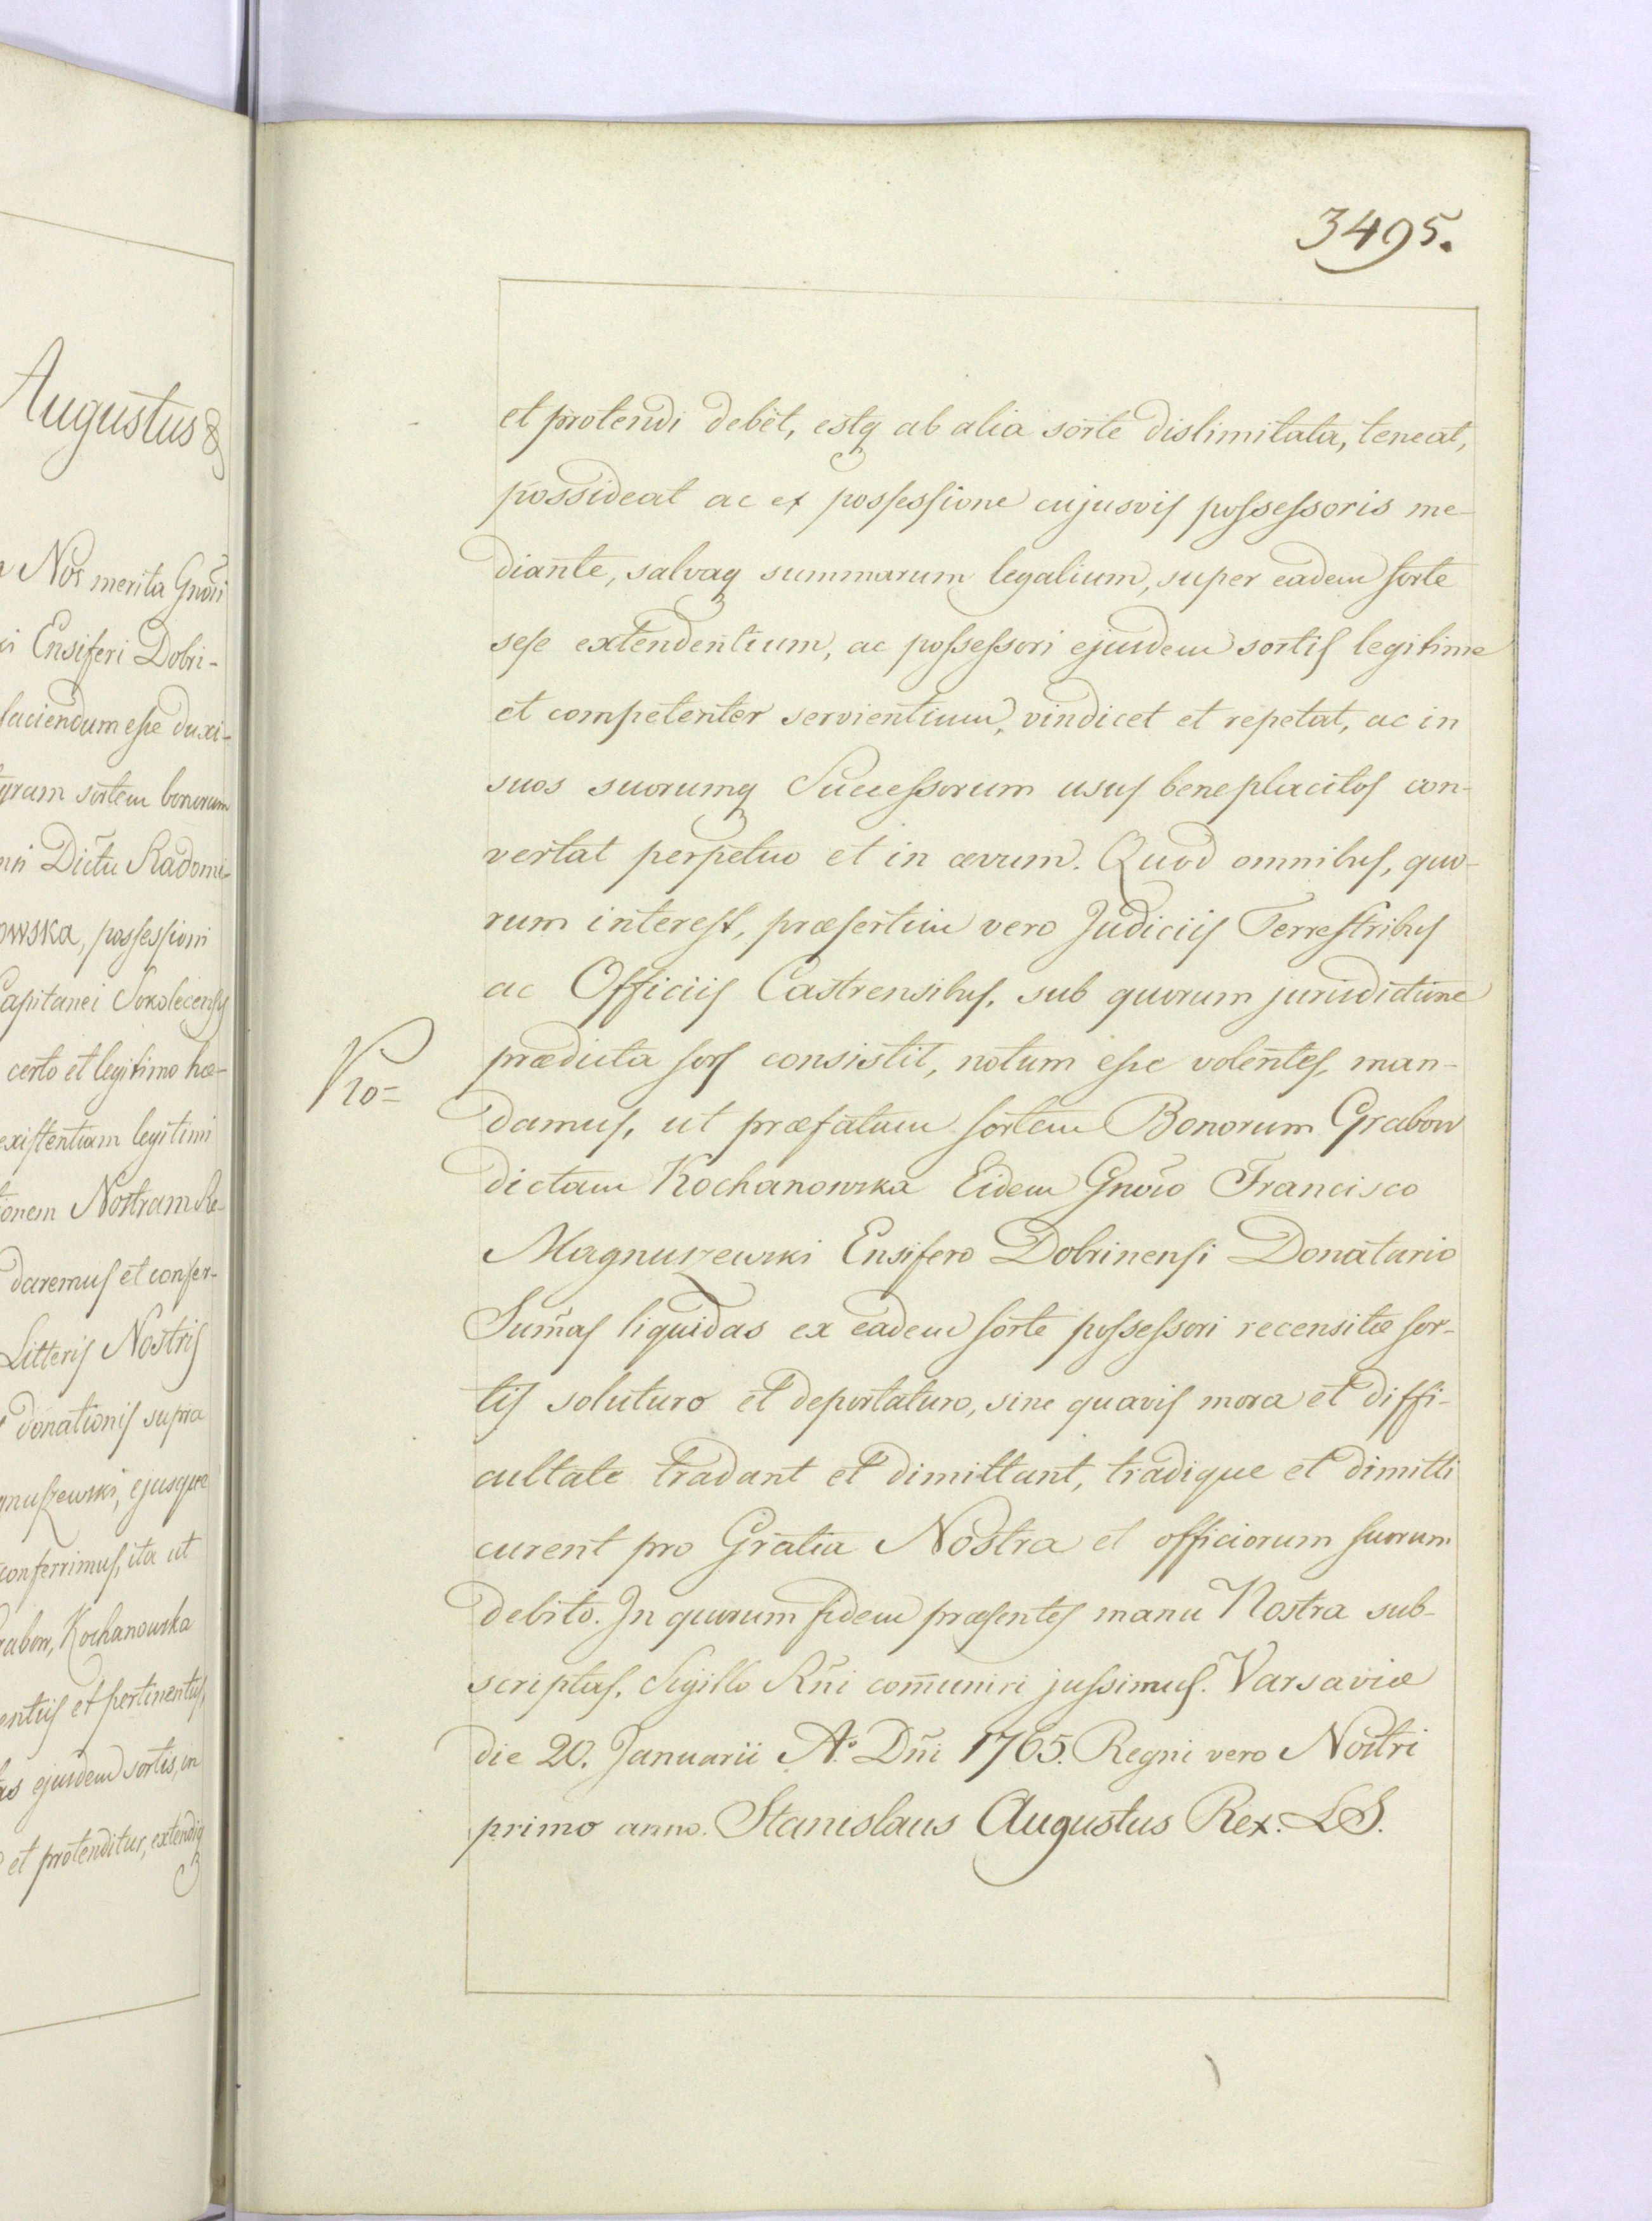 Augustus &
Nos merita Gnōsi
Ensiferi Dobri-
faciendum esse duxi-
sortem bonorum
Dictu Radomi-
owska, possessioni
Capitanei Sokolecensis
certo et legitimo hæ-
existentiam legitimi
onem Nostram Re-
daremus et confer-
Litteris Nostris
donationis supra
gnuszewski, ejusque
conferrimus, ita ut
rabow, Kochanowska
entiis et pertinentiis,
ejusdem sortis, in
et protenditur, extendiq
3495.
et protendi debet, estq ab alia sorte dislimitata, teneat,
possideat ac ex possessione cujusvis possessoris me-
diante, salvaq summarum legalium, super eadem sorte
sese extendentium, ac possessori ejusdem sortis legitime
et competenter servientium, vindicet et repetat, ac in
suos suorumq Successorum usus beneplacitos con-
vertat perpetuo et in ævum. Quod omnibus, quo-
rum interest, præsertim vero Judiciis Terrestribus
ac Officiis Castrensibus, sub quorum jurisdictione
prædicta sors consistit, notum esse volentes, man-
damus, ut præfatam sortem Bonorum Grabow
dictam Kochanowska Eidem Gnōso Francisco
Magnuszewski Ensifero Dobrinensi Donatario
Sum̄as liquidas ex eadem sorte possessori recensitæ sor-
tis soluturo et deportaturo, sine quavis mora et diffi-
cultate tradant et dimittant, tradique et dimitti
curent pro Gratia Nostra et officiorum suorum
debito. In quorum fidem præsentes manu Nostra sub-
scriptas, Sigillo Rñi com̄uniri jussimus. Varsaviæ
die 20. Januarii A.º Dñi 1765. Regni vero Nostri
primo anno. Stanislaus Augustus Rex. LS.